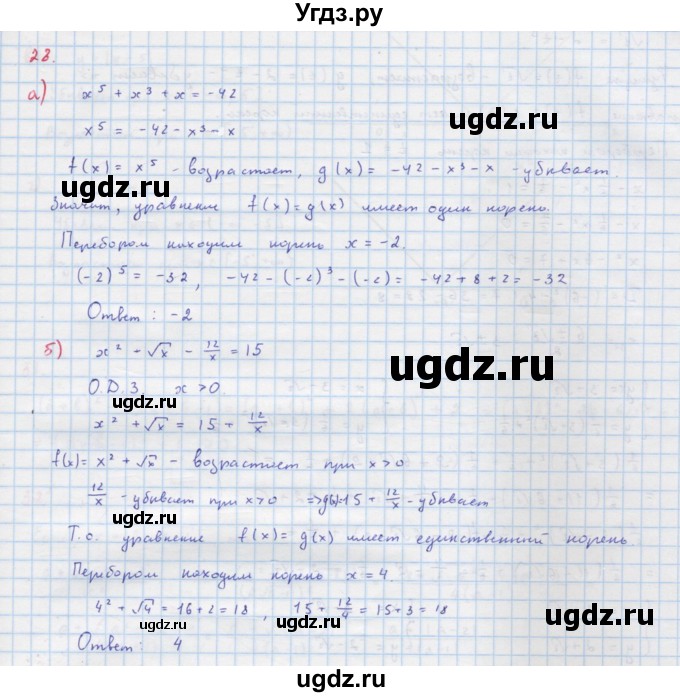 Угдз.ру
28.
а) x⁵ + x³ + x = -42
x⁵ = -42 - x³ - x
f(x) = x⁵ - возрастает, g(x) = -42 - x³ - x - убывает.
Значит, уравнение f(x) = g(x) имеет один корень.
Перебором находим корень x = -2.
(-2)⁵ = -32, -42 - (-2)³ - (-2) = -42 + 8 + 2 = -32
Ответ: -2
б) x² + √x - 12/x = 15
О.Д.З. x > 0.
x² + √x = 15 + 12/x
f(x) = x² + √x - возрастает при x > 0
12/x - убывает при x > 0 => g(x) = 15 + 12/x - убывает
Т.о. уравнение f(x) = g(x) имеет единственный корень.
Перебором находим корень x = 4.
4² + √4 = 16 + 2 = 18, 15 + 12/4 = 15 + 3 = 18
Ответ: 4
ugdz.ru
ugdz.ru
ugdz.ru
ugdz.ru
ugdz.ru
ugdz.ru
ugdz.ru
ugdz.ru